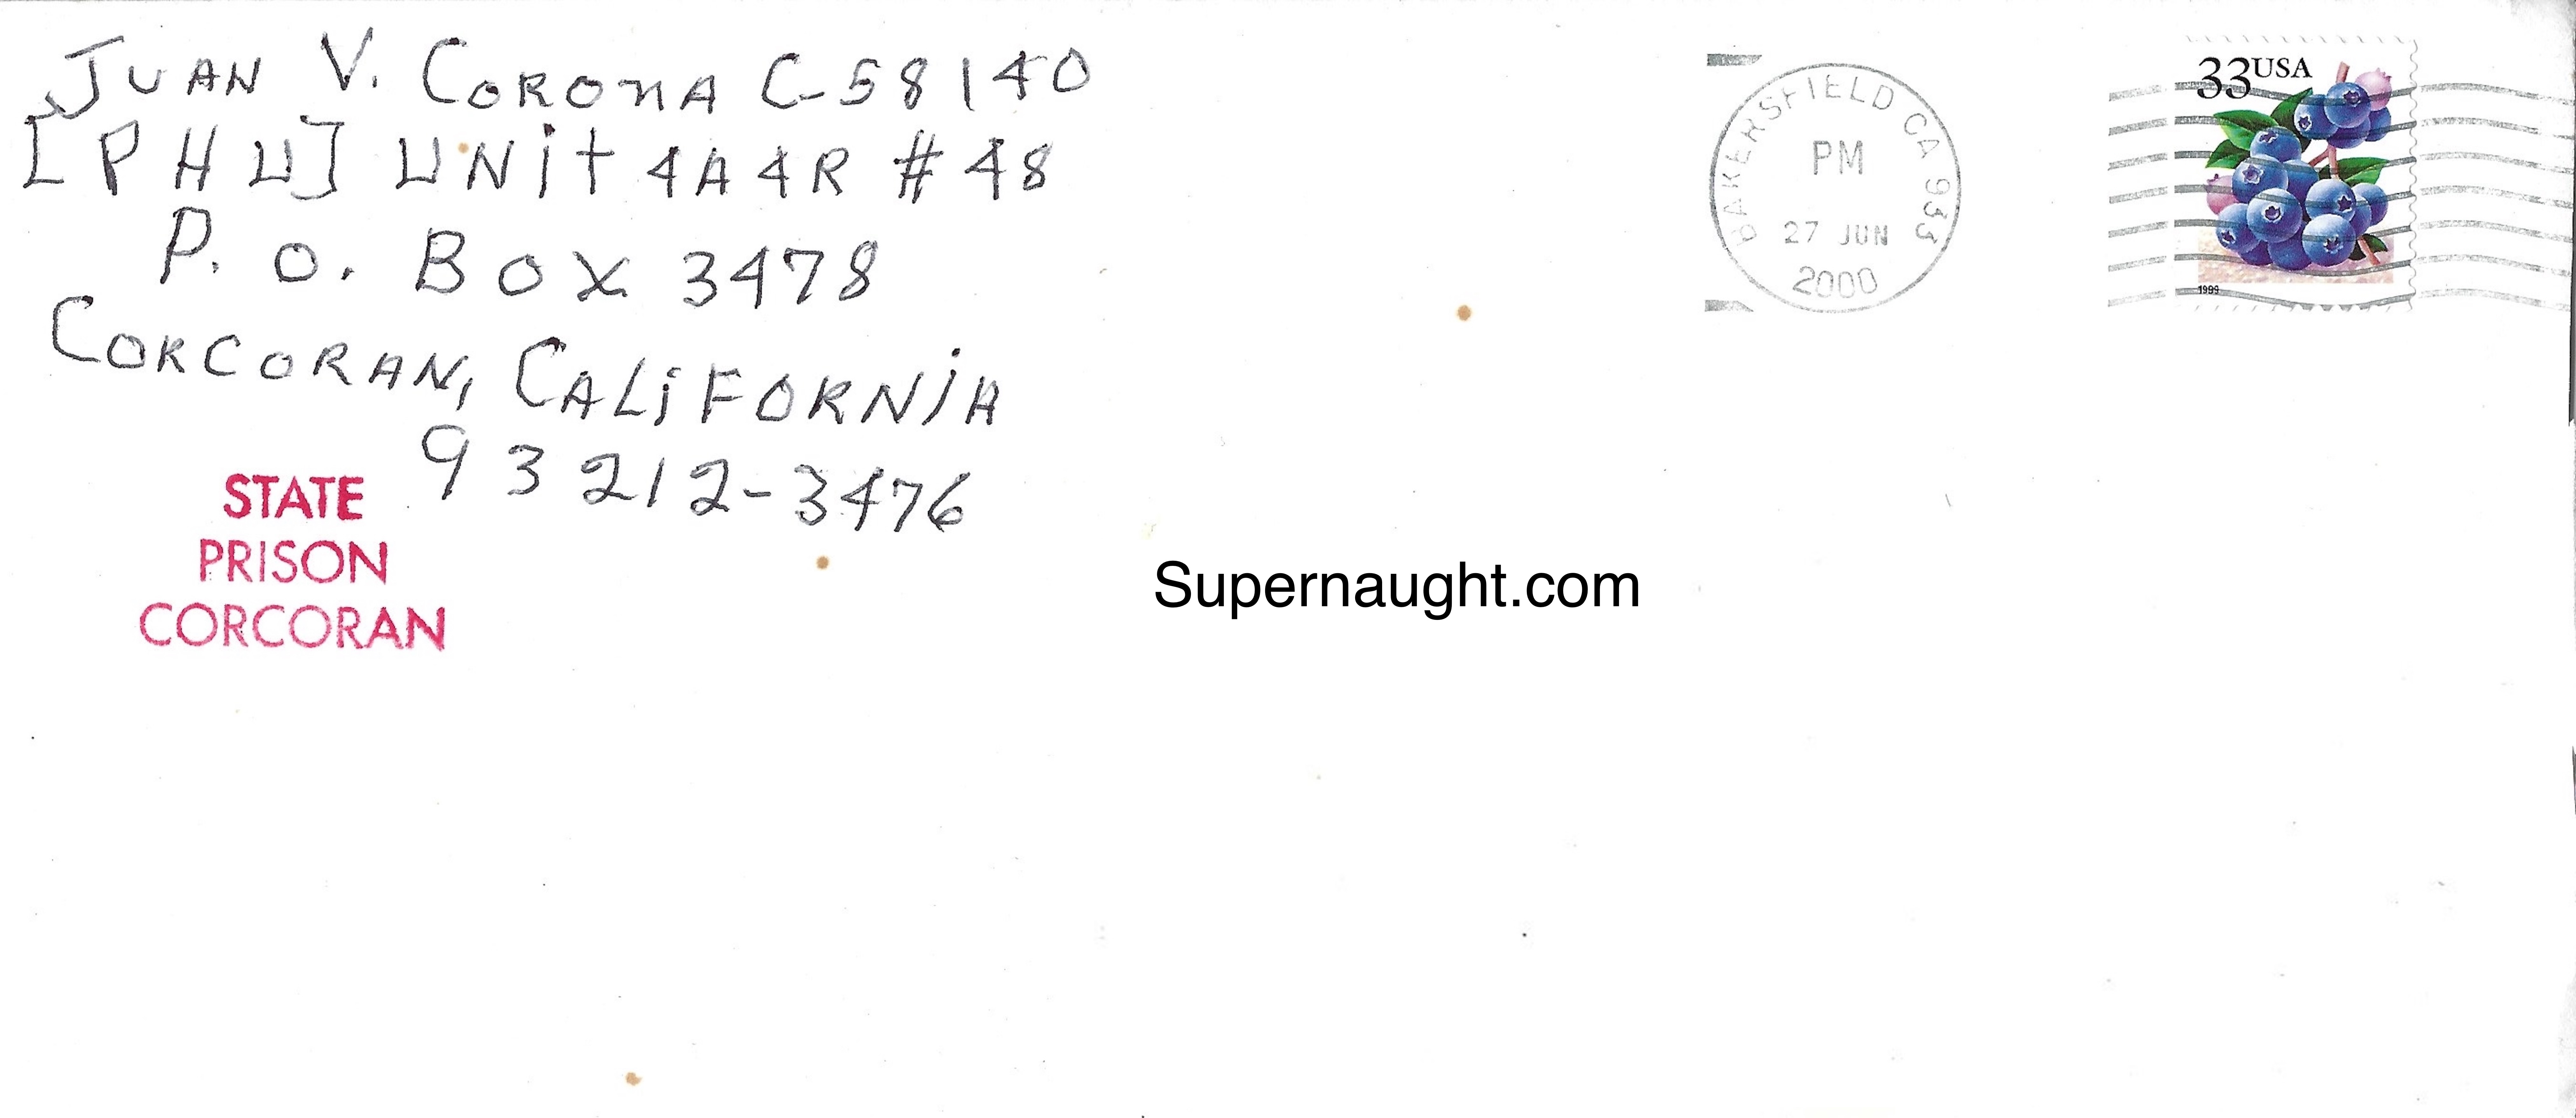 JUAN V. CORONA C-58140
[PHU] UNit 4A4R #48
P. O. BOX 3478
CORCORAN, CALiFORNiA
93212-3476
STATE
PRISON
CORCORAN
BAKERSFIELD CA 933
PM
27 JUN
2000
33USA
1999
Supernaught.com